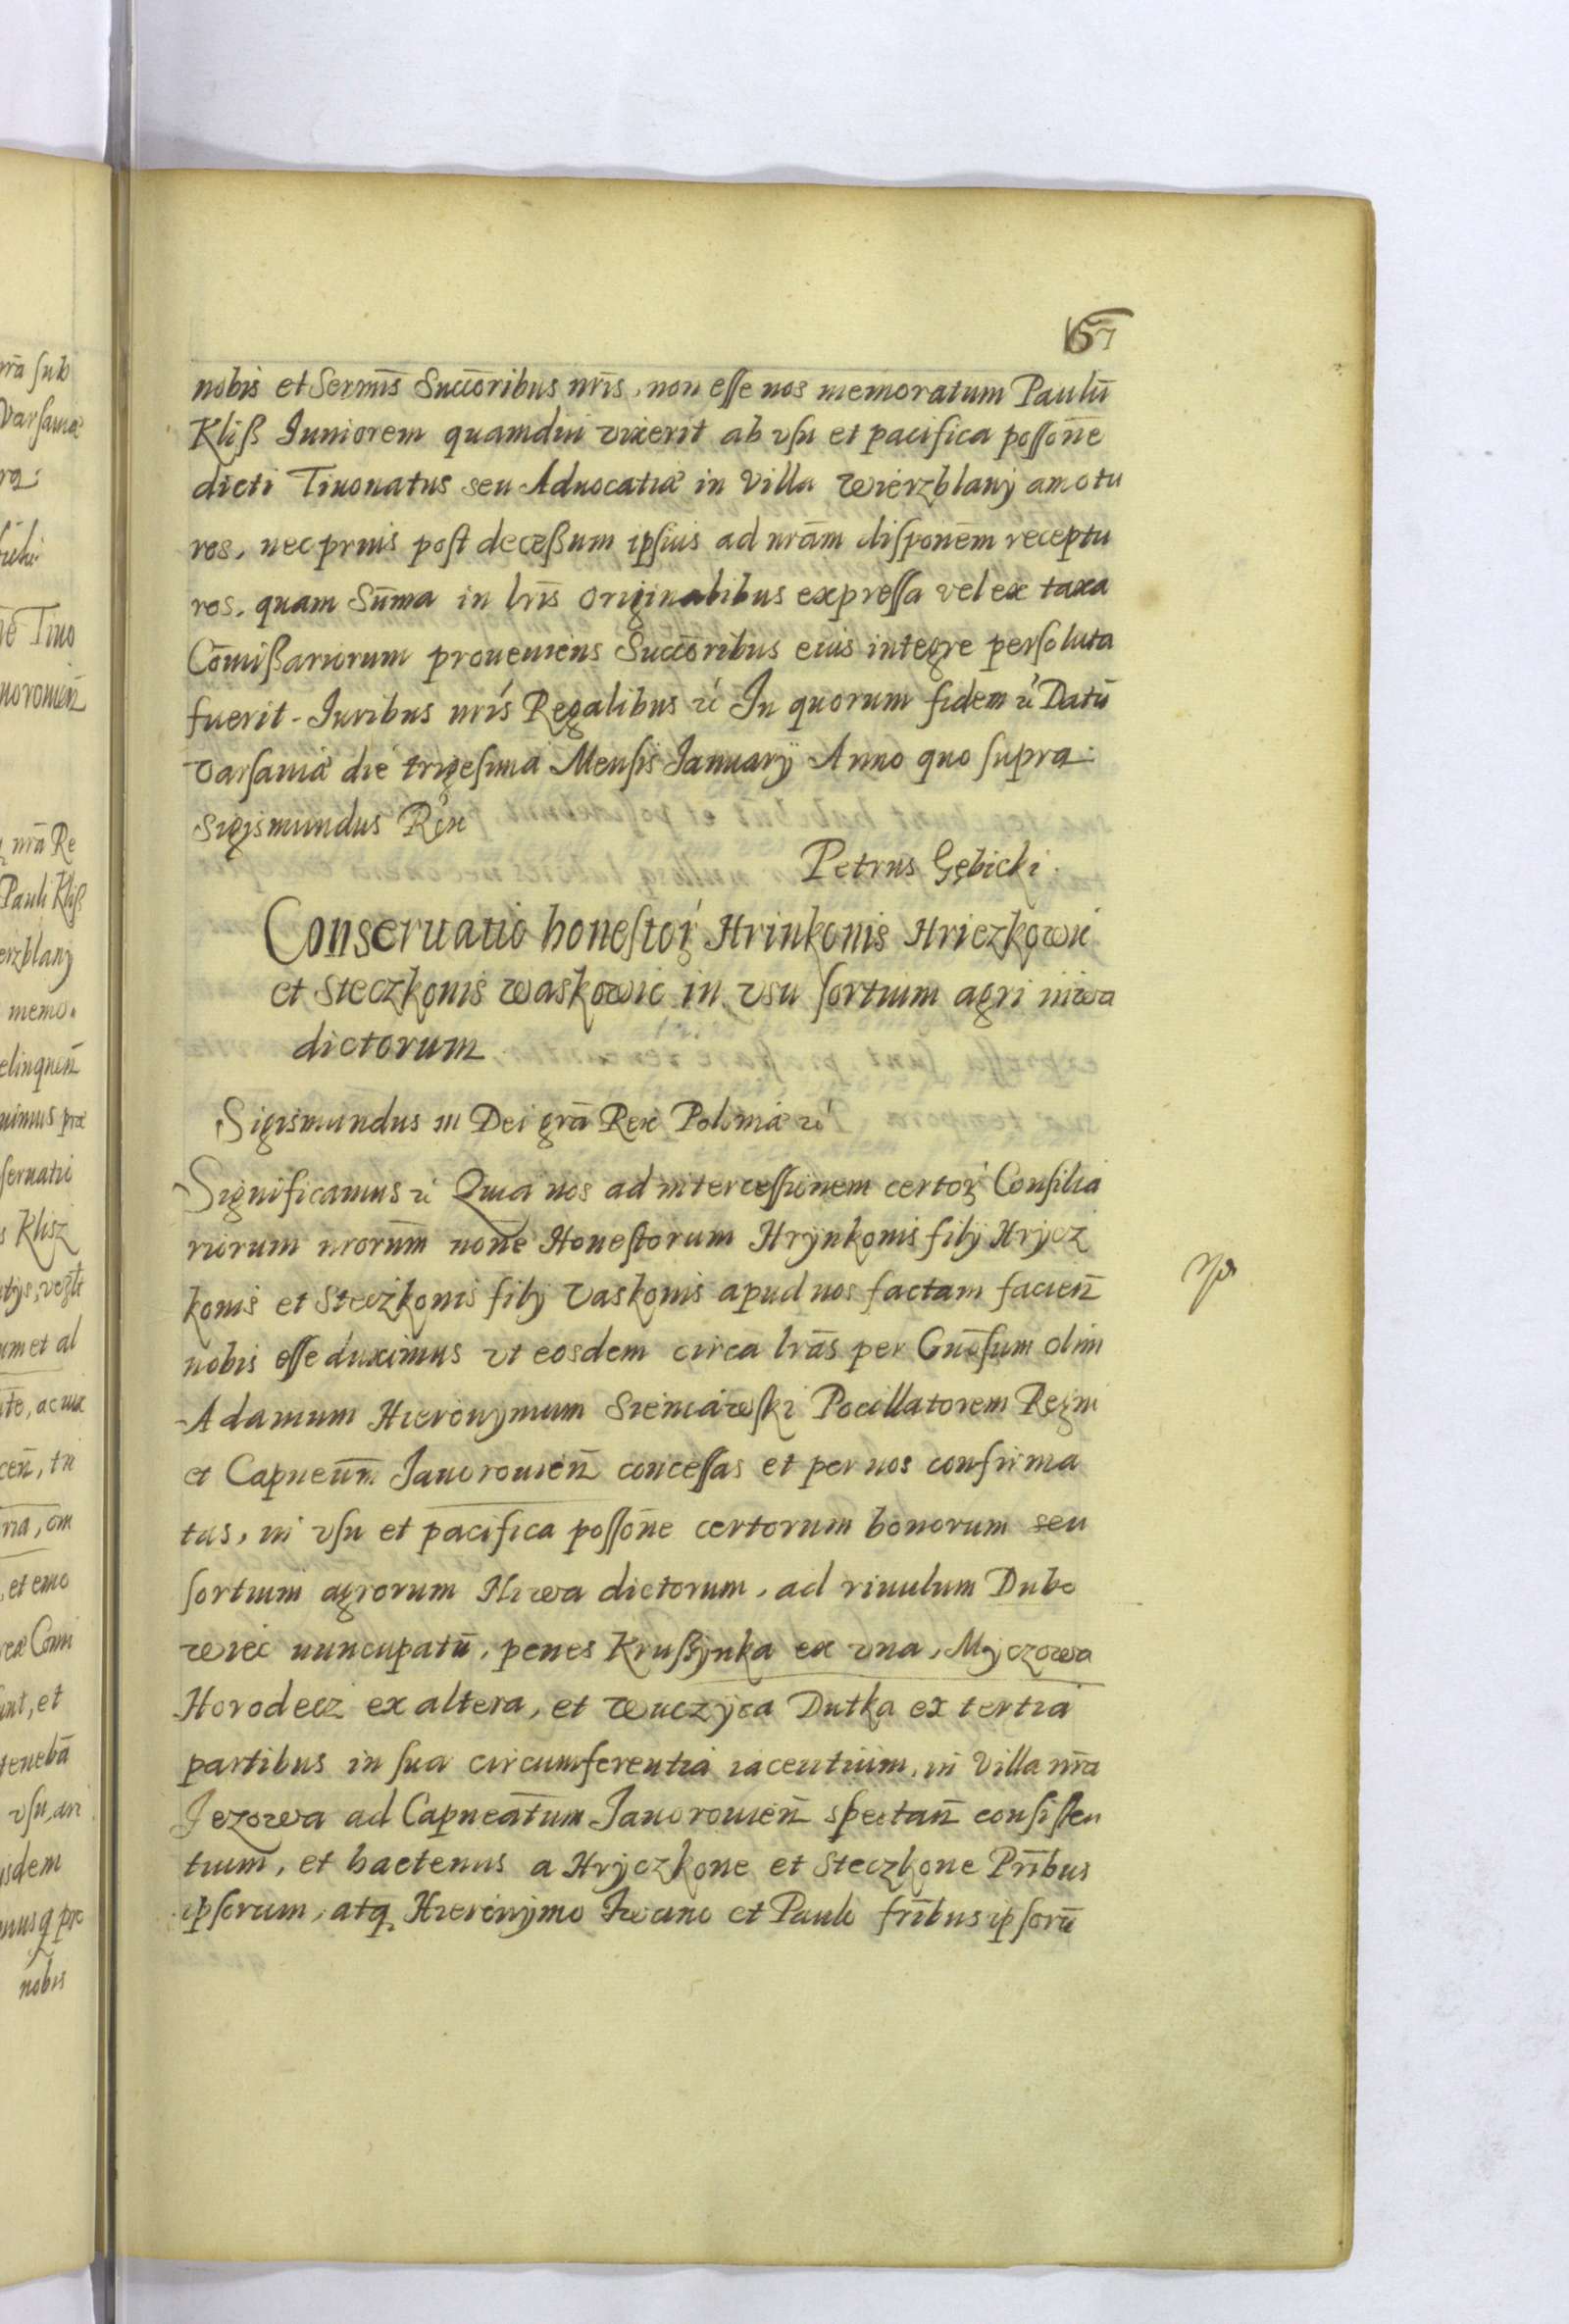 157
nobis et Sermis Succoribus nris, non esse nos memoratum Paulū
Kliß Iuniorem quamdiu vixerit ab vsu et pacifica possone
dicti Tiuonatus seu Aduocatiæ in Villa Wierzblany amotu
ros, nec prius post decessum ipsius ad nram disponem receptu
ros, quam Suma in lris Originalibus expressa vel ex taxa
Comissariorum proueniens Succoribus eius integre persoluta
fuerit. Iuribus nris Regalibus ꝛc In quorum fidem ꝛc Datū
Varsauiæ die trigesima Mensis Ianuarij Anno quo supra.
Sigismundus Rex
Petrus Gębicki.
Conseruatio honestoꝝ Hrinkonis Hriczkowic
et Steczkonis Waskowic in vsu sortium agri niwa
dictorum
Sigismundus III Dei gra Rex Poloniæ ꝛc
Significamus ꝛc Quia nos ad intercessionem certoꝝ Consilia
riorum nrorum noñe Honestorum Hrynkonis filij Hrycz
konis et Steczkonis filij Vaskonis apud nos factam facien
nobis esse duximus vt eosdem circa lras per Gnosum olim
Adamum Hieronymum Sieniawski Pocillatorem Regni
et Capneum Iauorouien concessas et per nos confirma
tas, in vsu et pacifica possone certorum bonorum seu
sortium agrorum Niwa dictorum, ad riuulum Dubo
wiec nuncupatū, penes Krussynka ex vna, Myczowa
Horodecz ex altera, et Wuczyca Dutka ex tertia
partibus in sua circumferentia iacentium, in Villa nra
Iezowa ad Capneatum Iauorouien spectan consisten
tium, et hactenus a Hryczkone et Steczkone Pribus
ipsorum, atq Hieronymo Iwano et Paulo fribus ipsorū